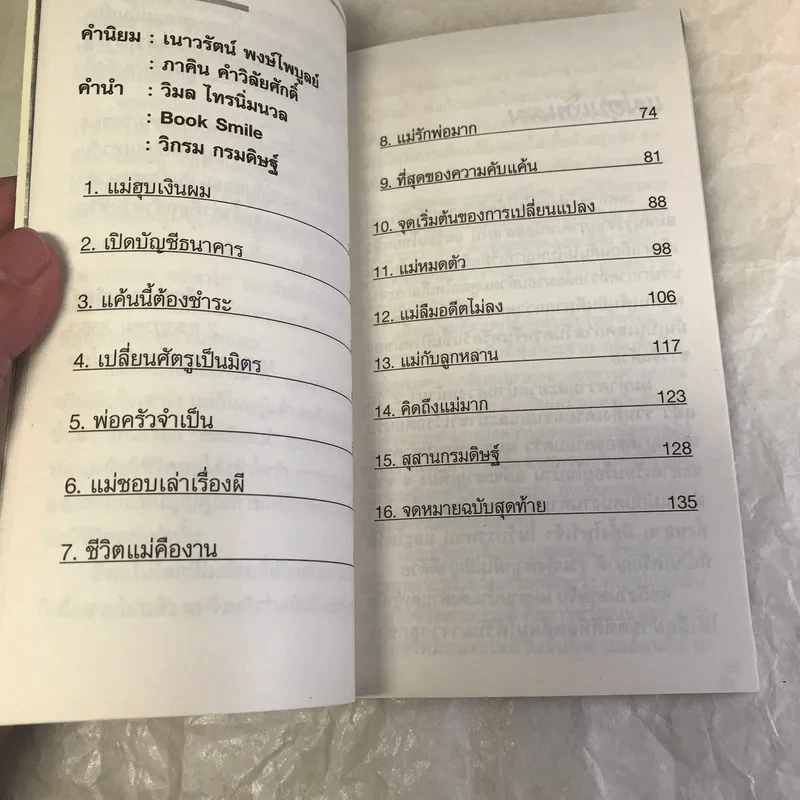 คำนิยม : เนาวรัตน์ พงษ์ไพบูลย์
: ภาคิน คำวิลัยศักดิ์
คำนำ : วิมล ไทรนิ่มนวล
: Book Smile
: วิกรม กรมดิษฐ์
1. แม่ฮุบเงินผม
2. เปิดบัญชีธนาคาร
3. แค้นนี้ต้องชำระ
4. เปลี่ยนศัตรูเป็นมิตร
5. พ่อครัวจำเป็น
6. แม่ชอบเล่าเรื่องผี
7. ชีวิตแม่คืองาน
8. แม่รักพ่อมาก 74
9. ที่สุดของความคับแค้น 81
10. จุดเริ่มต้นของการเปลี่ยนแปลง 88
11. แม่หมดตัว 98
12. แม่ลืมอดีตไม่ลง 106
13. แม่กับลูกหลาน 117
14. คิดถึงแม่มาก 123
15. สุสานกรมดิษฐ์ 128
16. จดหมายฉบับสุดท้าย 135